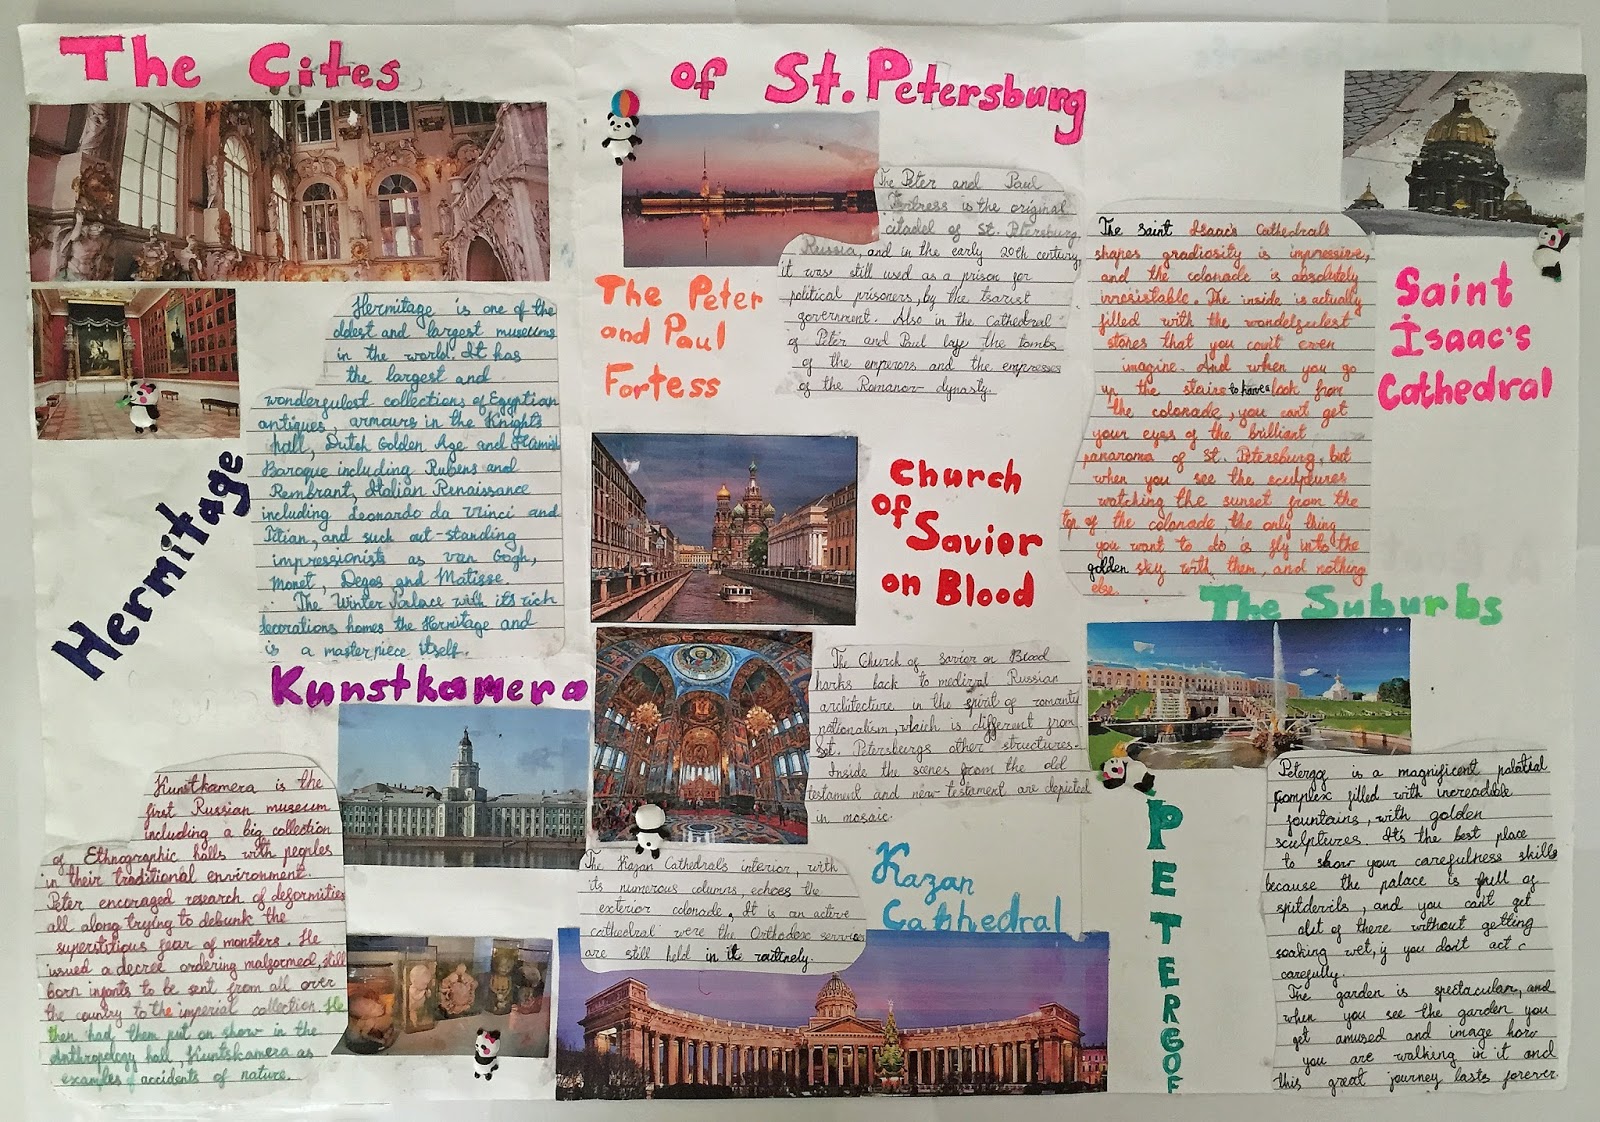 The Cites of St. Petersburg
Hermitage is one of the
oldest and largest museums
in the world. It has
the largest and
wonderfulest collections of Egyptian
antiques, armours in the Knight's
hall, Dutch Golden Age and Flamish
Baroque including Rubens and
Rembrant, Italian Renaissance
including Leonardo da Vinci and
Titian, and such out-standing
impressionists as van Gogh,
Monet, Degas and Matisse.
The Winter Palace with its rich
decorations homes the Hermitage and
is a masterpiece itself.
Hermitage
Kunstkamera
Kunstkamera is the
first Russian museum
including a big collection
of Ethnographic halls with peoples
in their traditional environment.
Peter encoraged research of deformities
all along trying to debunk the
superstitious fear of monsters. He
issued a decree ordering malformed, still
born infants to be sent from all over
the country to the imperial collection. He
then had them put on show in the
Anthropology hall, Kuntskamera as
examples of accidents of nature.
The Peter and Paul
Fortress is the original
citadel of St. Petersburg,
Russia, and in the early 20th century,
it was still used as a prison for
political prisoners, by the tsarist
government. Also in the Cathedral
of Peter and Paul lay the tombs
of the emperors and the empresses
of the Romanov dynasty.
The Peter
and Paul
Fortess
Church
of Savior
on Blood
The Church of Savior on Blood
harks back to medieval Russian
architecture in the spirit of romantic
nationalism, which is different from
St. Petersburgs other structures.
Inside the scenes from the old
testament and new testament are depicted
in mosaic.
The Kazan Cathedral's interior, with
its numerous columns, echoes the
exterior colonade. It is an active
cathedral were the Orthodox services
are still held in it routinely.
Kazan
Cathhedral
The Saint Isaac's Cathedral's
shapes gradiosity is impressive,
and the colonade is absolutely
irresistable. The inside is actually
filled with the wondelfulest
stones that you can't even
imagine. And when you go
up the stairs to have a look from
the colonade, you can't get
your eyes of the brilliant
panaroma of St. Petersburg, but
when you see the sculptures
watching the sunset from the
top of the colonade the only thing
you want to do is fly into the
golden sky with them, and nothing
else.
Saint
Isaac's
Cathedral
The Suburbs
PETERGOF
Petergof is a magnificent palatial
complex filled with increadible
fountains, with golden
sculptures. It's the best place
to show your carefulness skills
because the palace is full of
spitdevils, and you can't get
out of there without getting
soaking wet, if you don't act
carefully.
The garden is spectacular, and
when you see the garden you
get amused and image how
you are walking in it and
this great journey lasts forever.